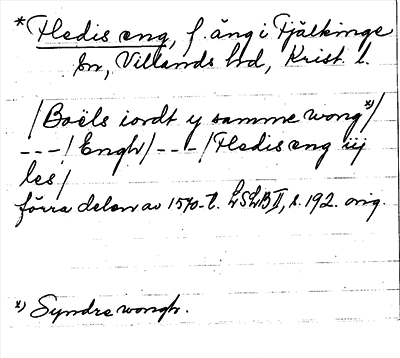 *Hedis eng, f. äng i Fjälkinge
sn, Villands hd, Krist. l.
/Boëls iordt y samme wong x)/
---/Engh/---/Hedis eng iij
les/
förra delen av 1570-t. LSLB II, s. 192. orig.
x) Syndre wongh.